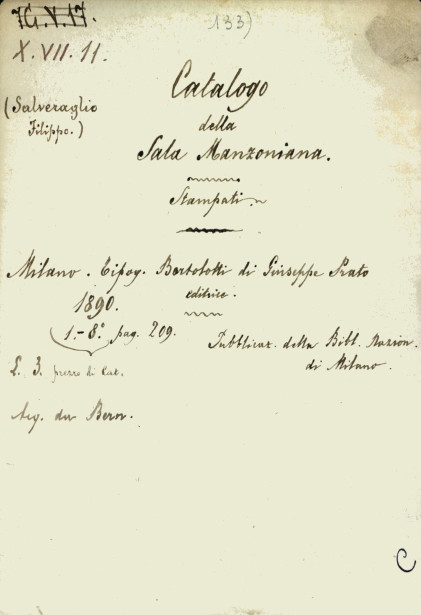 7G.V.17.
133)
X. VII. 11.
(Salveraglio
Filippo.)
Catalogo
della
Sala Manzoniana.
Stampati.
Milano. Tipog. Bortolotti di Giuseppe Prato
editrice.
1890.
1.- 8.º pag. 209.
Pubblicaz. della Bibl. Nazion.
di Milano.
L. 3. prezzo di Cat.
Acq. da Bern.
C